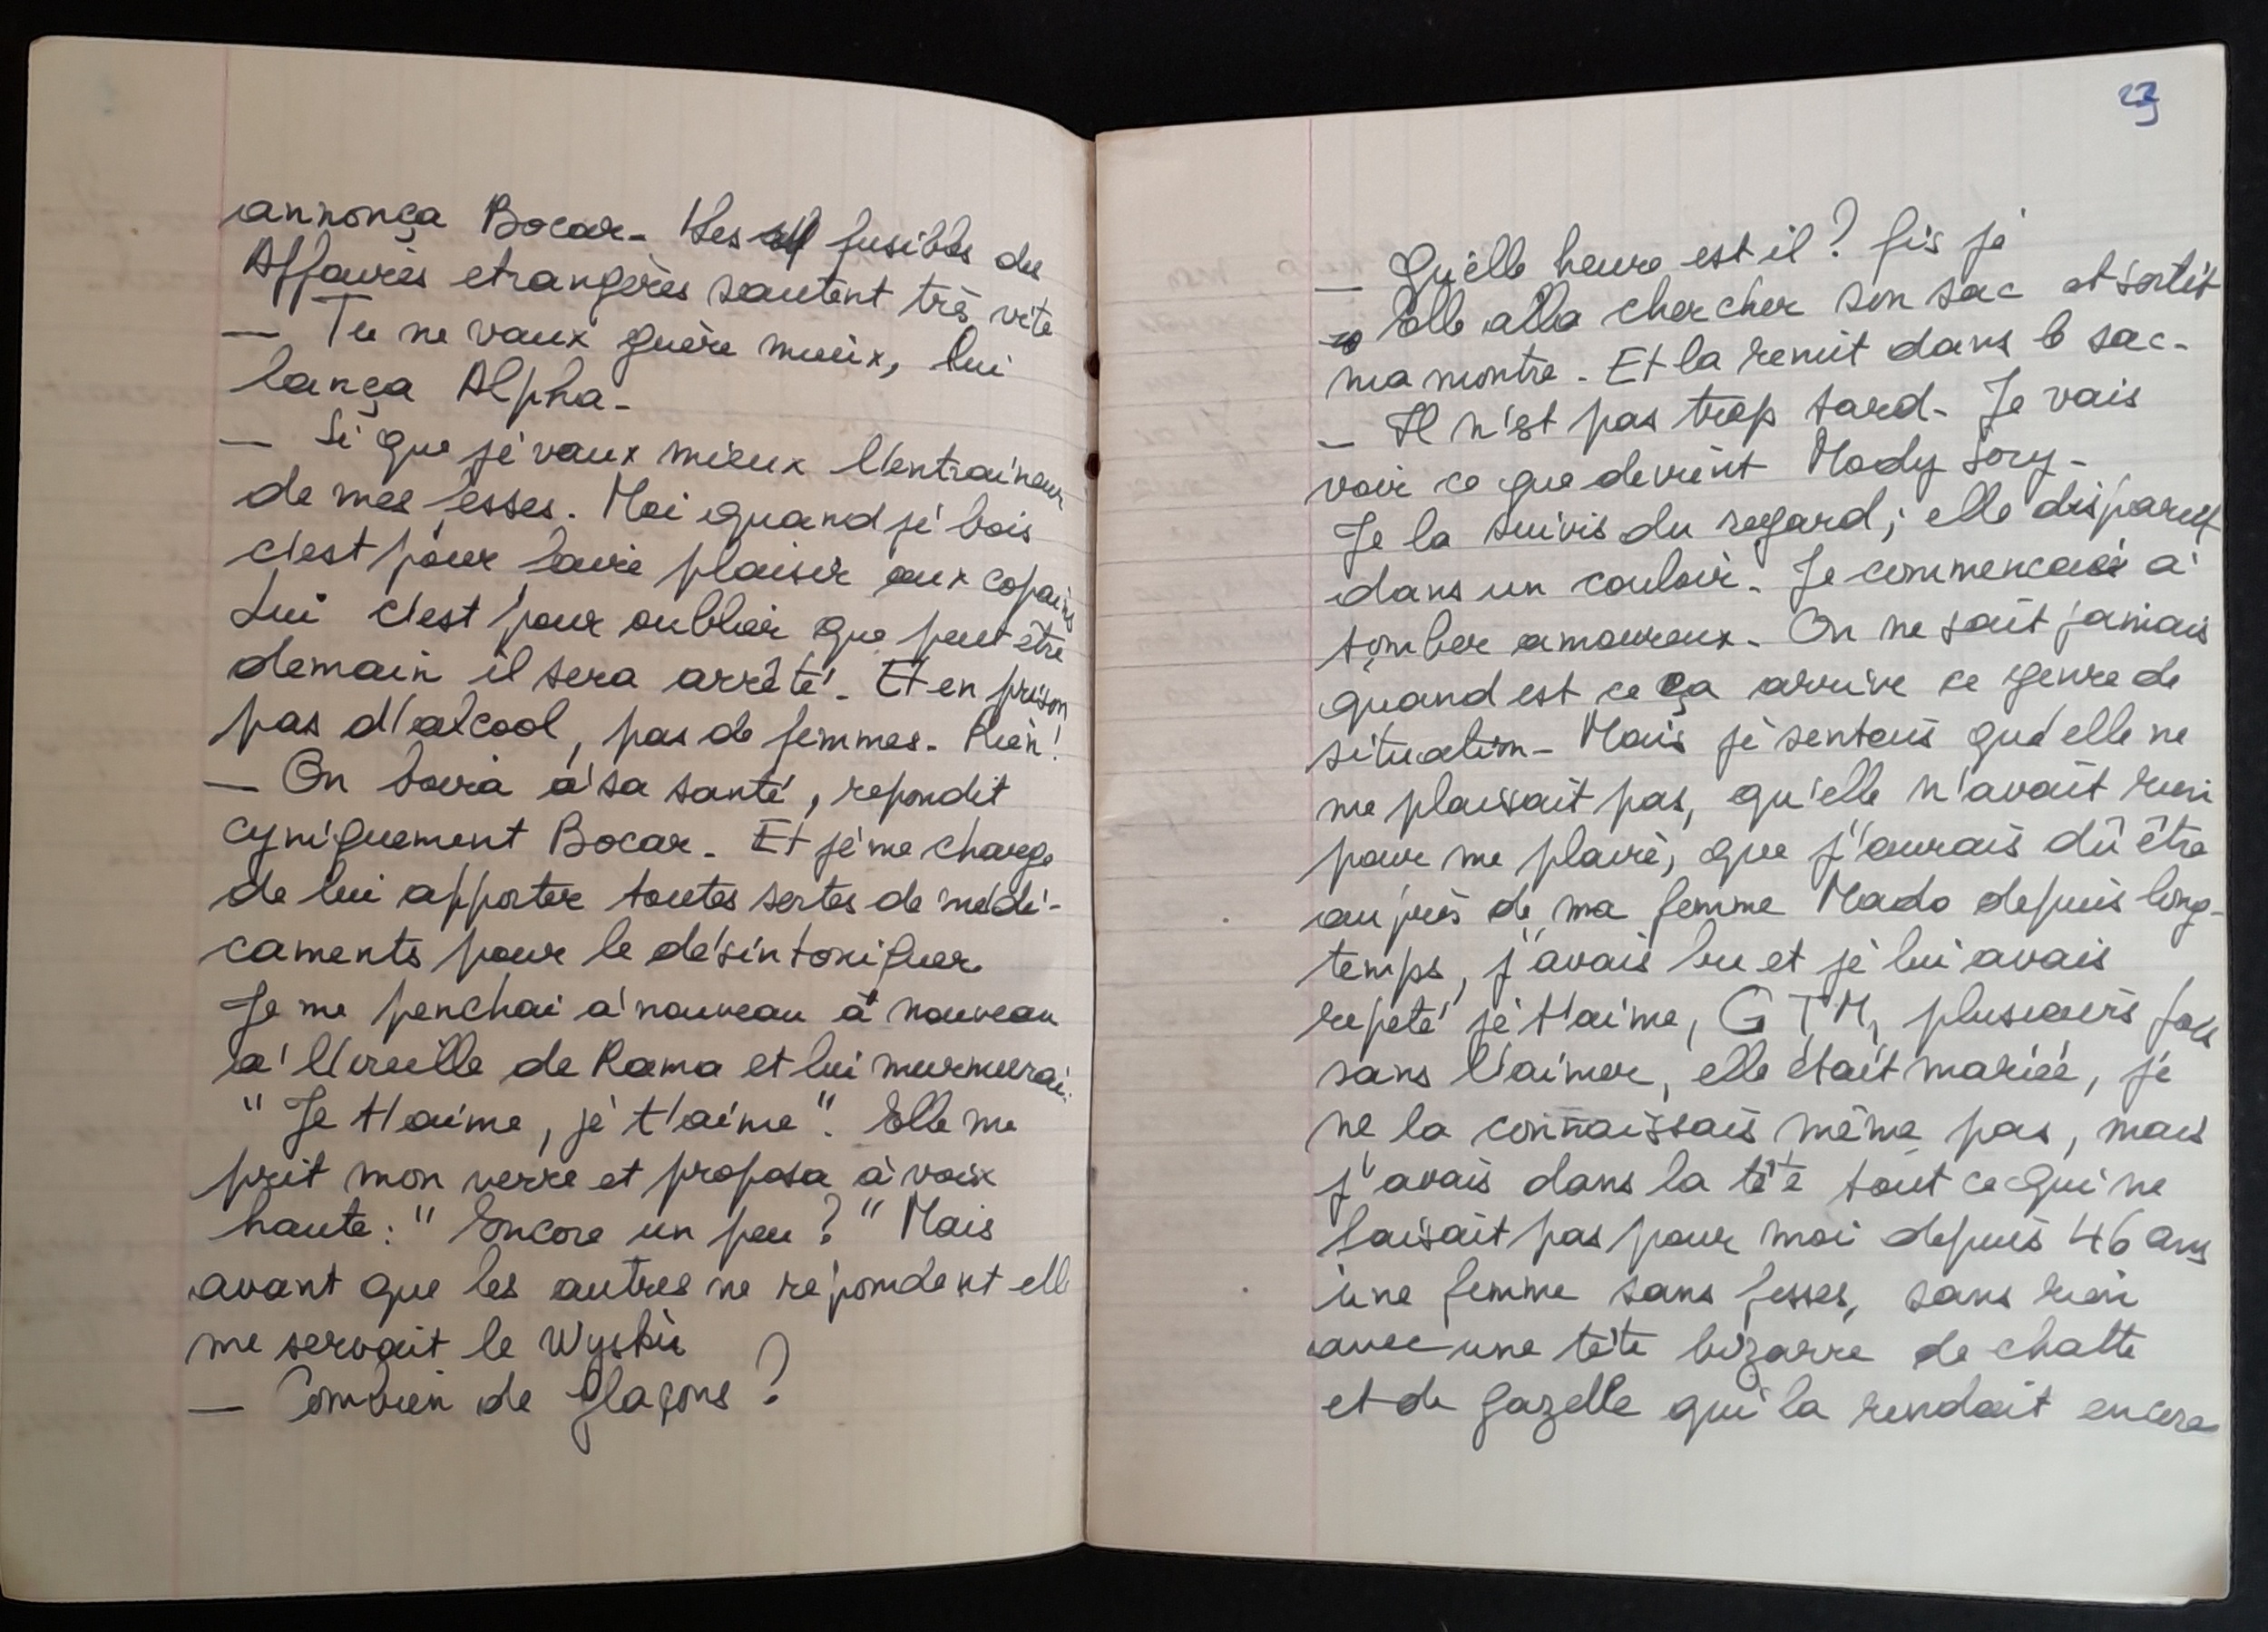 annonça Bocar. Les fusibles des
Affaires etrangères sautent très vite
— Tu ne vaux guère mieux, lui
lança Alpha.
— Si que je vaux mieux l'entraineur
de mes fesses. Moi quand je bois
c'est pour faire plaisir aux copains
Lui c'est pour oublier que peut être
demain il sera arrêté. Et en prison
pas d'alcool, pas de femmes. Rien!
— On boira à sa santé, repondit
cyniquement Bocar. Et je me charge
de lui apporter toutes sortes de médi-
caments pour le désintoxiquer.
Je me penchai à nouveau à nouveau
à l'oreille de Rama et lui murmurai
"Je t'aime, je t'aime". Elle me
prit mon verre et proposa à voix
haute: "Encore un peu?" Mais
avant que les autres ne répondent elle
me servait le Wyskie
— Combien de glaçons?
23
— Quelle heure est il? fis je
Elle alla chercher son sac et sortit
ma montre. Et la remit dans le sac.
— Il n'est pas trop tard. Je vais
voir ce que devient Mody Sory.
Je la suivis du regard; elle disparut
dans un couloir. Je commencai à
tomber amoureux. On ne sait jamais
quand est ce ça arrive ce genre de
situation. Mais je sentais qu'elle ne
me plaisait pas, qu'elle n'avait rien
pour me plaire, que j'aurais dû être
auprès de ma femme Mado depuis long-
temps, j'avais bu et je lui avais
repeté je t'aime, GTM, plusieurs fois
sans l'aimer, elle était mariée, je
ne la connaissais même pas, mais
j'avais dans la tête tout ce qui ne
faisait pas pour moi depuis 46 ans
une femme sans fesses, sans rien
avec une tête bizarre de chatte
et de gazelle qui la rendait encore